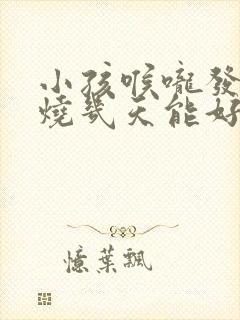 小孩喉嚨發
燒幾天能好
憶葉飄